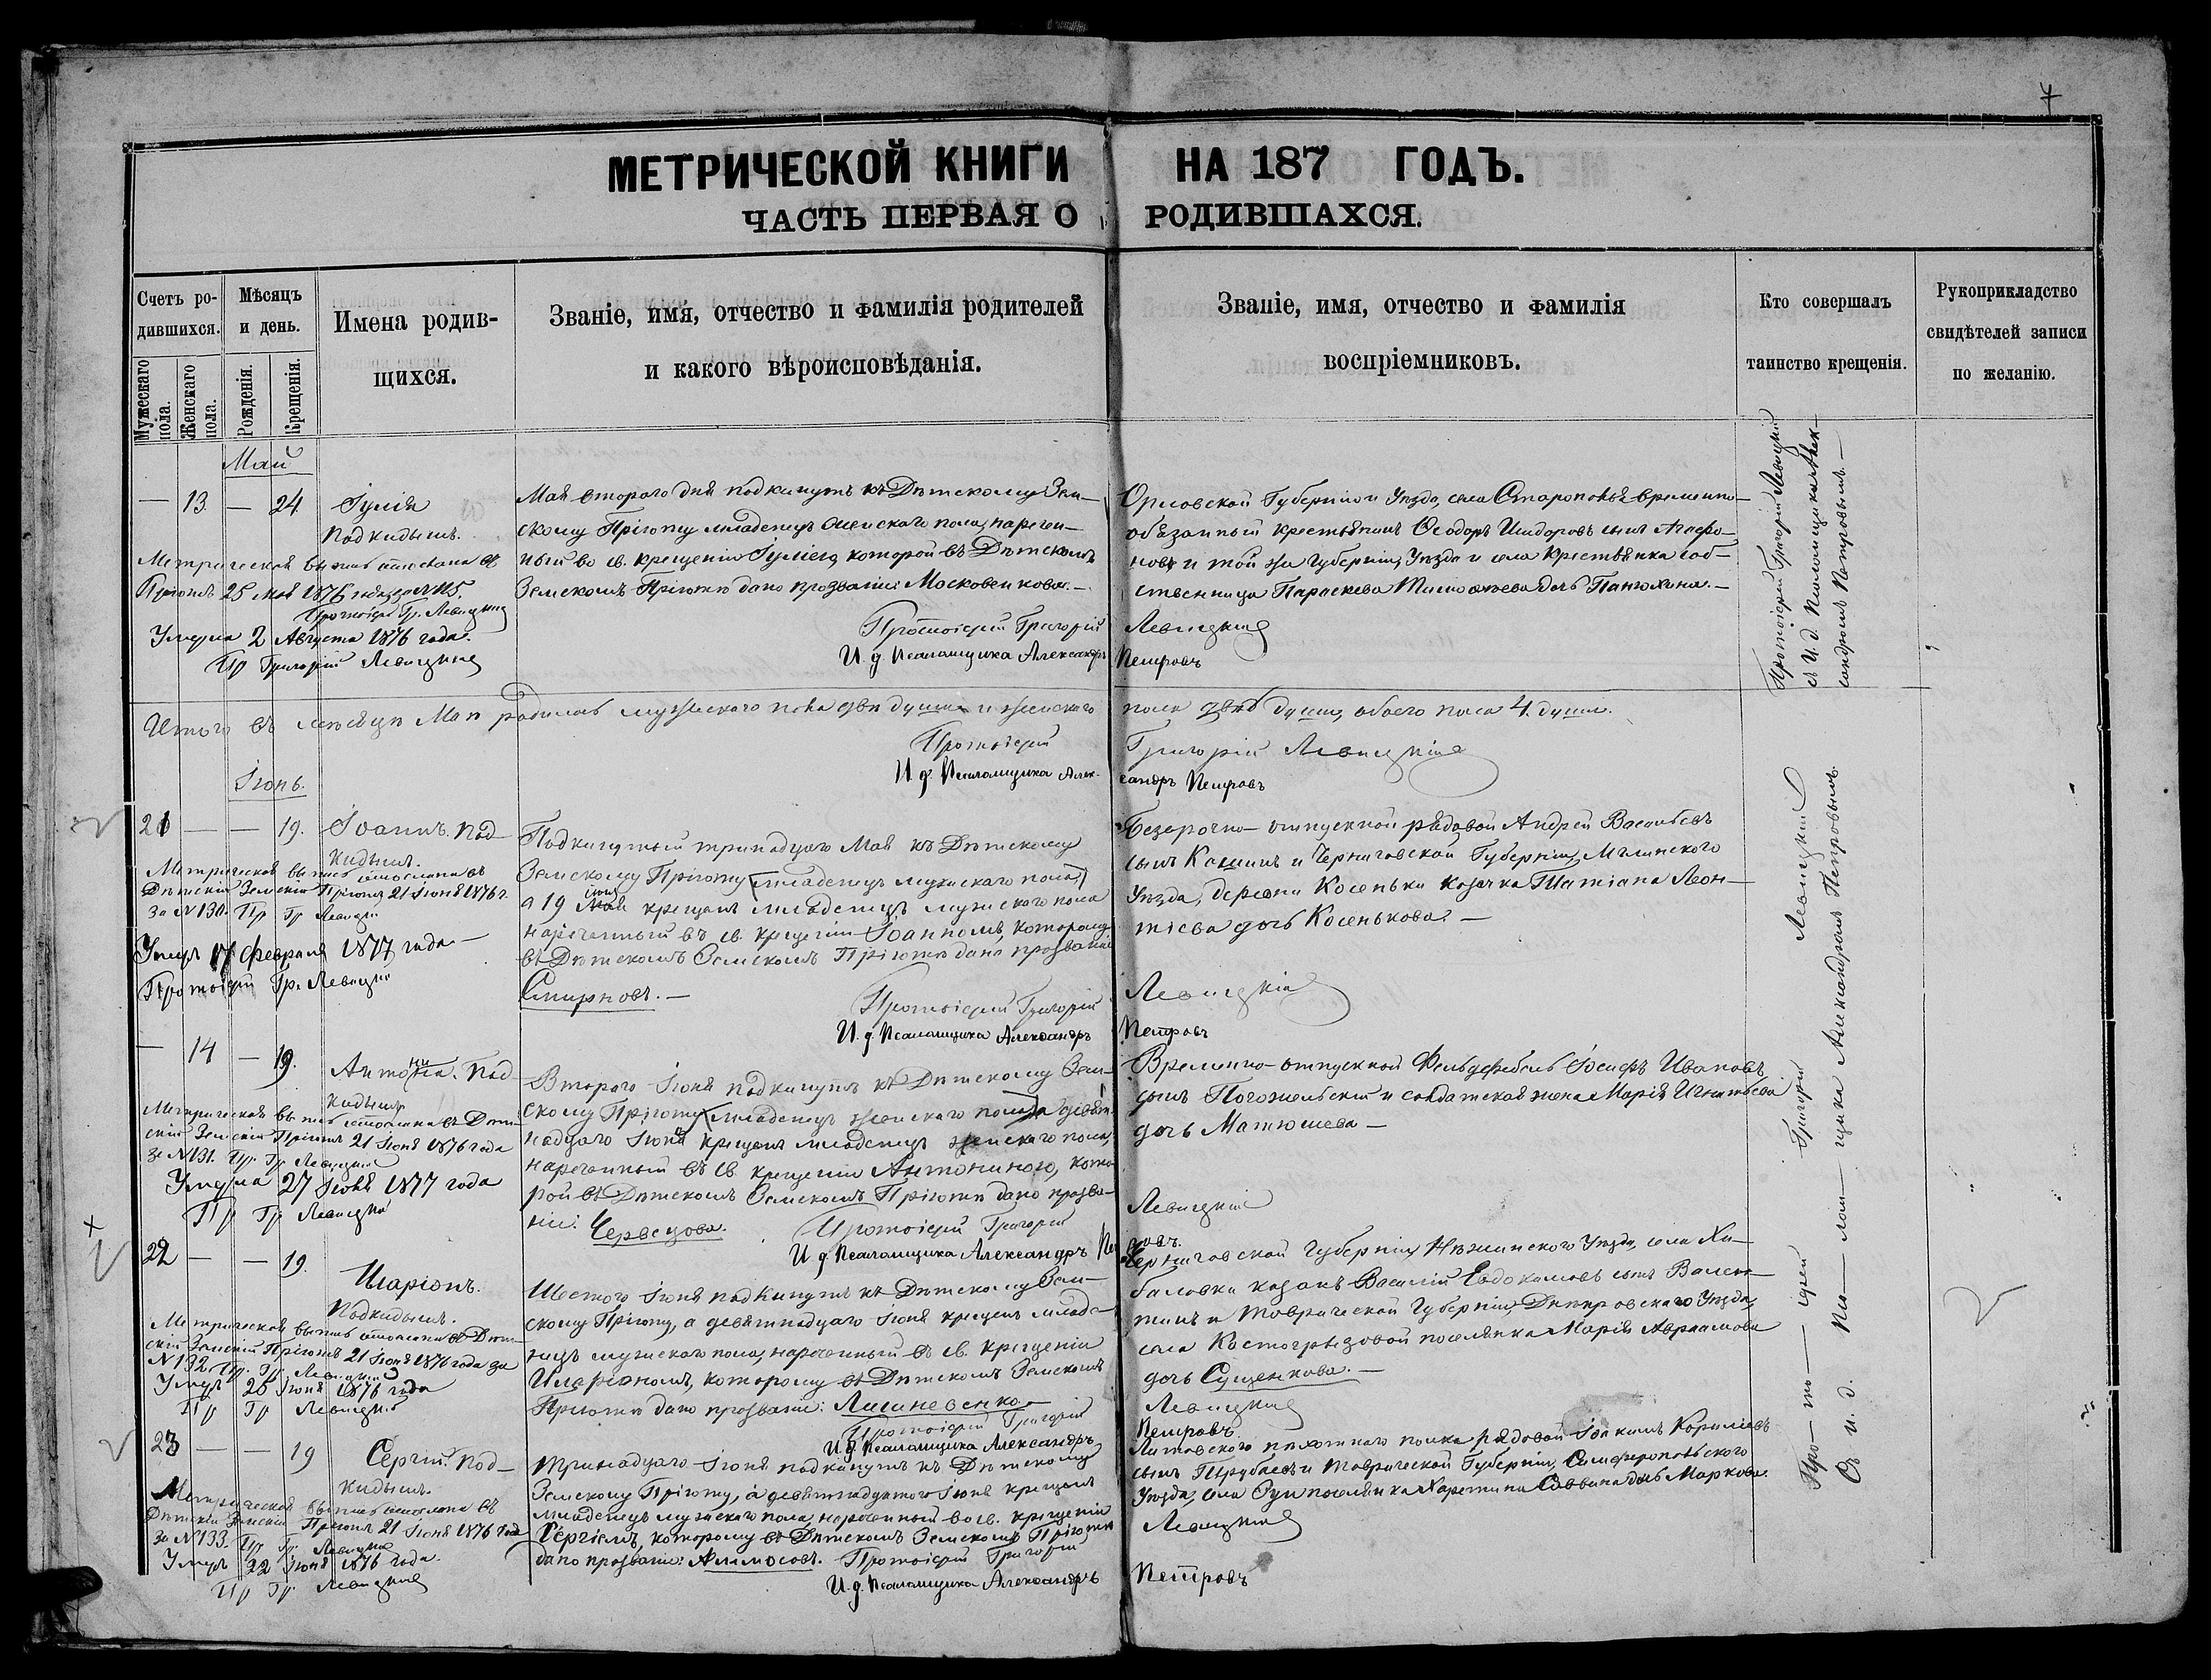 4
МЕТРИЧЕСКОЙ КНИГИ НА 187 ГОДЪ.
ЧАСТЬ ПЕРВАЯ О РОДИВШАХСЯ.
Счетъ ро-
дившихся.
Мужескаго пола.
Женскаго пола.
Мѣсяцъ
и день.
Рожденія.
Крещенія.
Имена родив-
щихся.
Званіе, имя, отчество и фамилія родителей
и какого вѣроисповѣданія.
Званіе, имя, отчество и фамилія
воспріемниковъ.
Кто совершалъ
таинство крещенія.
Рукоприкладство
свидѣтелей записи
по желанію.
Май
— 13. — 24
Іулія
Подкидышъ.
Метрическая выпись отослана въ
Пріютъ 25 Мая 1876 года за № 115.
Протоіерей Гр. Левицкій
Умерла 2 Августа 1876 года.
Пр Григорій Левицкій
Мая второго дня подкинутъ къ Дѣтскому Зем-
скому Пріюту младенецъ женскаго пола, наречен-
ный во св. крещеніи Іуліею, которой въ Дѣтскомъ
Земскомъ Пріютѣ дано прозваніе Московенкова. —
Протоіерей Григорій Левицкій
И. д. Псаломщика Александръ Петровъ
Орловской Губерніи и Уѣзда, села Старополья временно-
обязанный крестьянинъ Ѳеодоръ Исидоровъ сынъ Агафо-
новъ и той же Губерніи, Уѣзда и села крестьянка соб-
ственница Параскева Тимоѳеева дочь Панюхина. —
Протоіерей Григорій Левицкій
съ И. д. Псаломщика Алек-
сандромъ Петровымъ. —
Итого въ мѣсяцѣ Маѣ родилось мужескаго пола двѣ души и женскаго пола двѣ души, обоего пола 4. души.
Протоіерей Григорій Левицкій
И. д. Псаломщика Александръ Петровъ
Іюнь.
21 — — 19.
Іоаннъ. Под-
кидышъ.
Метрическая выпись отослана въ
Дѣтскій Земскій Пріютъ 21 Іюня 1876 г.
за № 130. Пр Гр Левицкій
Умеръ 17 Февраля 1877 года —
Протоіерей Гр. Левицкій
Подкинутый тринадцаго Мая къ Дѣтскому
Земскому Пріюту (младенецъ мужескаго пола,)
а 19 Іюня крещенъ младенецъ мужескаго пола
нареченный въ св. крещеніи Іоанномъ, которому
въ Дѣтскомъ Земскомъ Пріютѣ дано прозваніе
Смирновъ. —
Протоіерей Григорій Левицкій
И. д. Псаломщика Александръ Петровъ
Безсрочно-отпускной рядовой Андрей Васильевъ
сынъ Кашинъ и Черниговской Губерніи, Мглинскаго
Уѣзда, деревни Косеньки козачка Татіана Леон-
тіева дочь Косенькова. —
— 14 — 19.
Антонина. Под-
кидышъ.
Метрическая выпись отослана въ Дѣт-
скій Земскій Пріютъ 21 Іюня 1876 года
за № 131. Пр. Гр. Левицкій
Умерла 27 Іюня 1877 года
Пр Гр Левицкій
Второго Іюня подкинутъ къ Дѣтскому Зем-
скому Пріюту (младенецъ женскаго пола,) а девят-
надцаго Іюня крещенъ младенецъ женскаго пола,
нареченный въ св. крещеніи Антониною, кото-
рой въ Дѣтскомъ Земскомъ Пріютѣ дано прозва-
ніе: Червецова.
Протоіерей Григорій Левицкій
И д Псаломщика Александръ Петровъ.
Временно-отпускной Фельдфебель Іосифъ Ивановъ
сынъ Погожельскій и солдатская жена Марія Игнатьева
дочь Матюшева —
22 — — 19.
Иларіонъ.
Подкидышъ.
Метрическая выпись отослана въ Дѣт-
скій Земскій Пріютъ 21 Іюня 1876 года за
№ 132. Пр. Гр. Левицкій
Умеръ 25 Іюня 1876 года
Пр Гр Левицкій
Шестого Іюня подкинутъ къ Дѣтскому Зем-
скому Пріюту, а девятнадцаго Іюня крещенъ младе-
нецъ мужескаго пола, нареченный въ св. крещеніи
Иларіономъ, которому въ Дѣтскомъ Земскомъ
Пріютѣ дано прозваніе:
Протоіерей Григорій Левицкій
И д Псаломщика Александръ Петровъ.
Черниговской Губерніи, Нѣжинскаго Уѣзда, села Хи-
баловки козакъ Василій Евдокимовъ сынъ Вален-
тинъ и Таврической Губерніи, Днѣпровскаго Уѣзда,
села Костогрызовой поселянка Марія Авраамова
дочь Сущенкова. —
23 — — 19
Сергій. Под-
кидышъ.
Метрическая выпись отослана въ
Дѣтскій Земскій Пріютъ 21 Іюня 1876 года
за № 133. Пр Гр Левицкій
Умеръ 22 Іюня 1876 года.
Пр Гр Левицкій
Тринадцаго Іюня подкинутъ къ Дѣтскому
Земскому Пріюту, а девятнадцатого Іюня крещенъ
младенецъ мужескаго пола, нареченный во св. крещеніи
Сергіемъ, которому въ Дѣтскомъ Земскомъ Пріютѣ
дано прозваніе: Алмосовъ. Протоіерей Григорій Левицкій
И. д. Псаломщика Александръ Петровъ
Литовскаго пѣхотнаго полка рядовой Іоакимъ Корниліевъ
сынъ Трубаевъ и Таврической Губерніи, Симферопольскаго
Уѣзда, села Зуи поселянка Харетина Саввина дочь Маркова.
Про- то- іерей Григорій Левицкій
Съ и. д. Пса- лом- щика Александромъ Петровымъ.